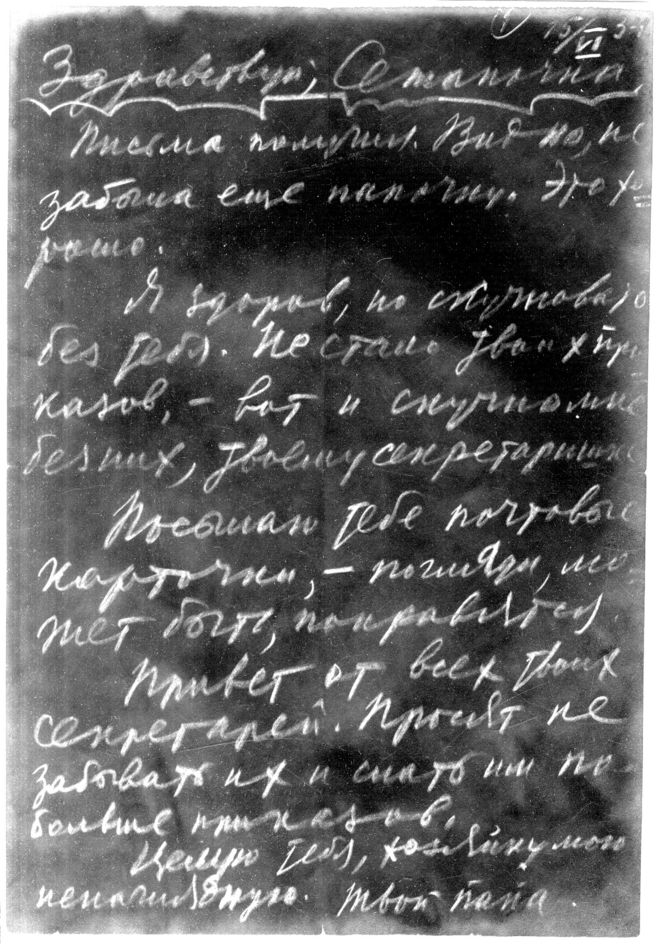 ① 15/VI 3
Здравствуй, Сетаночка,
Письма получил. Видно, не
забыла еще папочку. Это хо-
рошо.
Я здоров, но скучновато
без тебя. Не стало твоих при-
казов, – вот и скучно мне
без них, твоему секретаришке
Посылаю тебе почтовые
карточки, – погляди, мо-
жет быть, понравятся.
Привет от всех твоих
секретарей. Просят не
забывать их и слать им по-
больше приказов.
Целую тебя, хозяйку мою
ненаглядную. Твой папа.